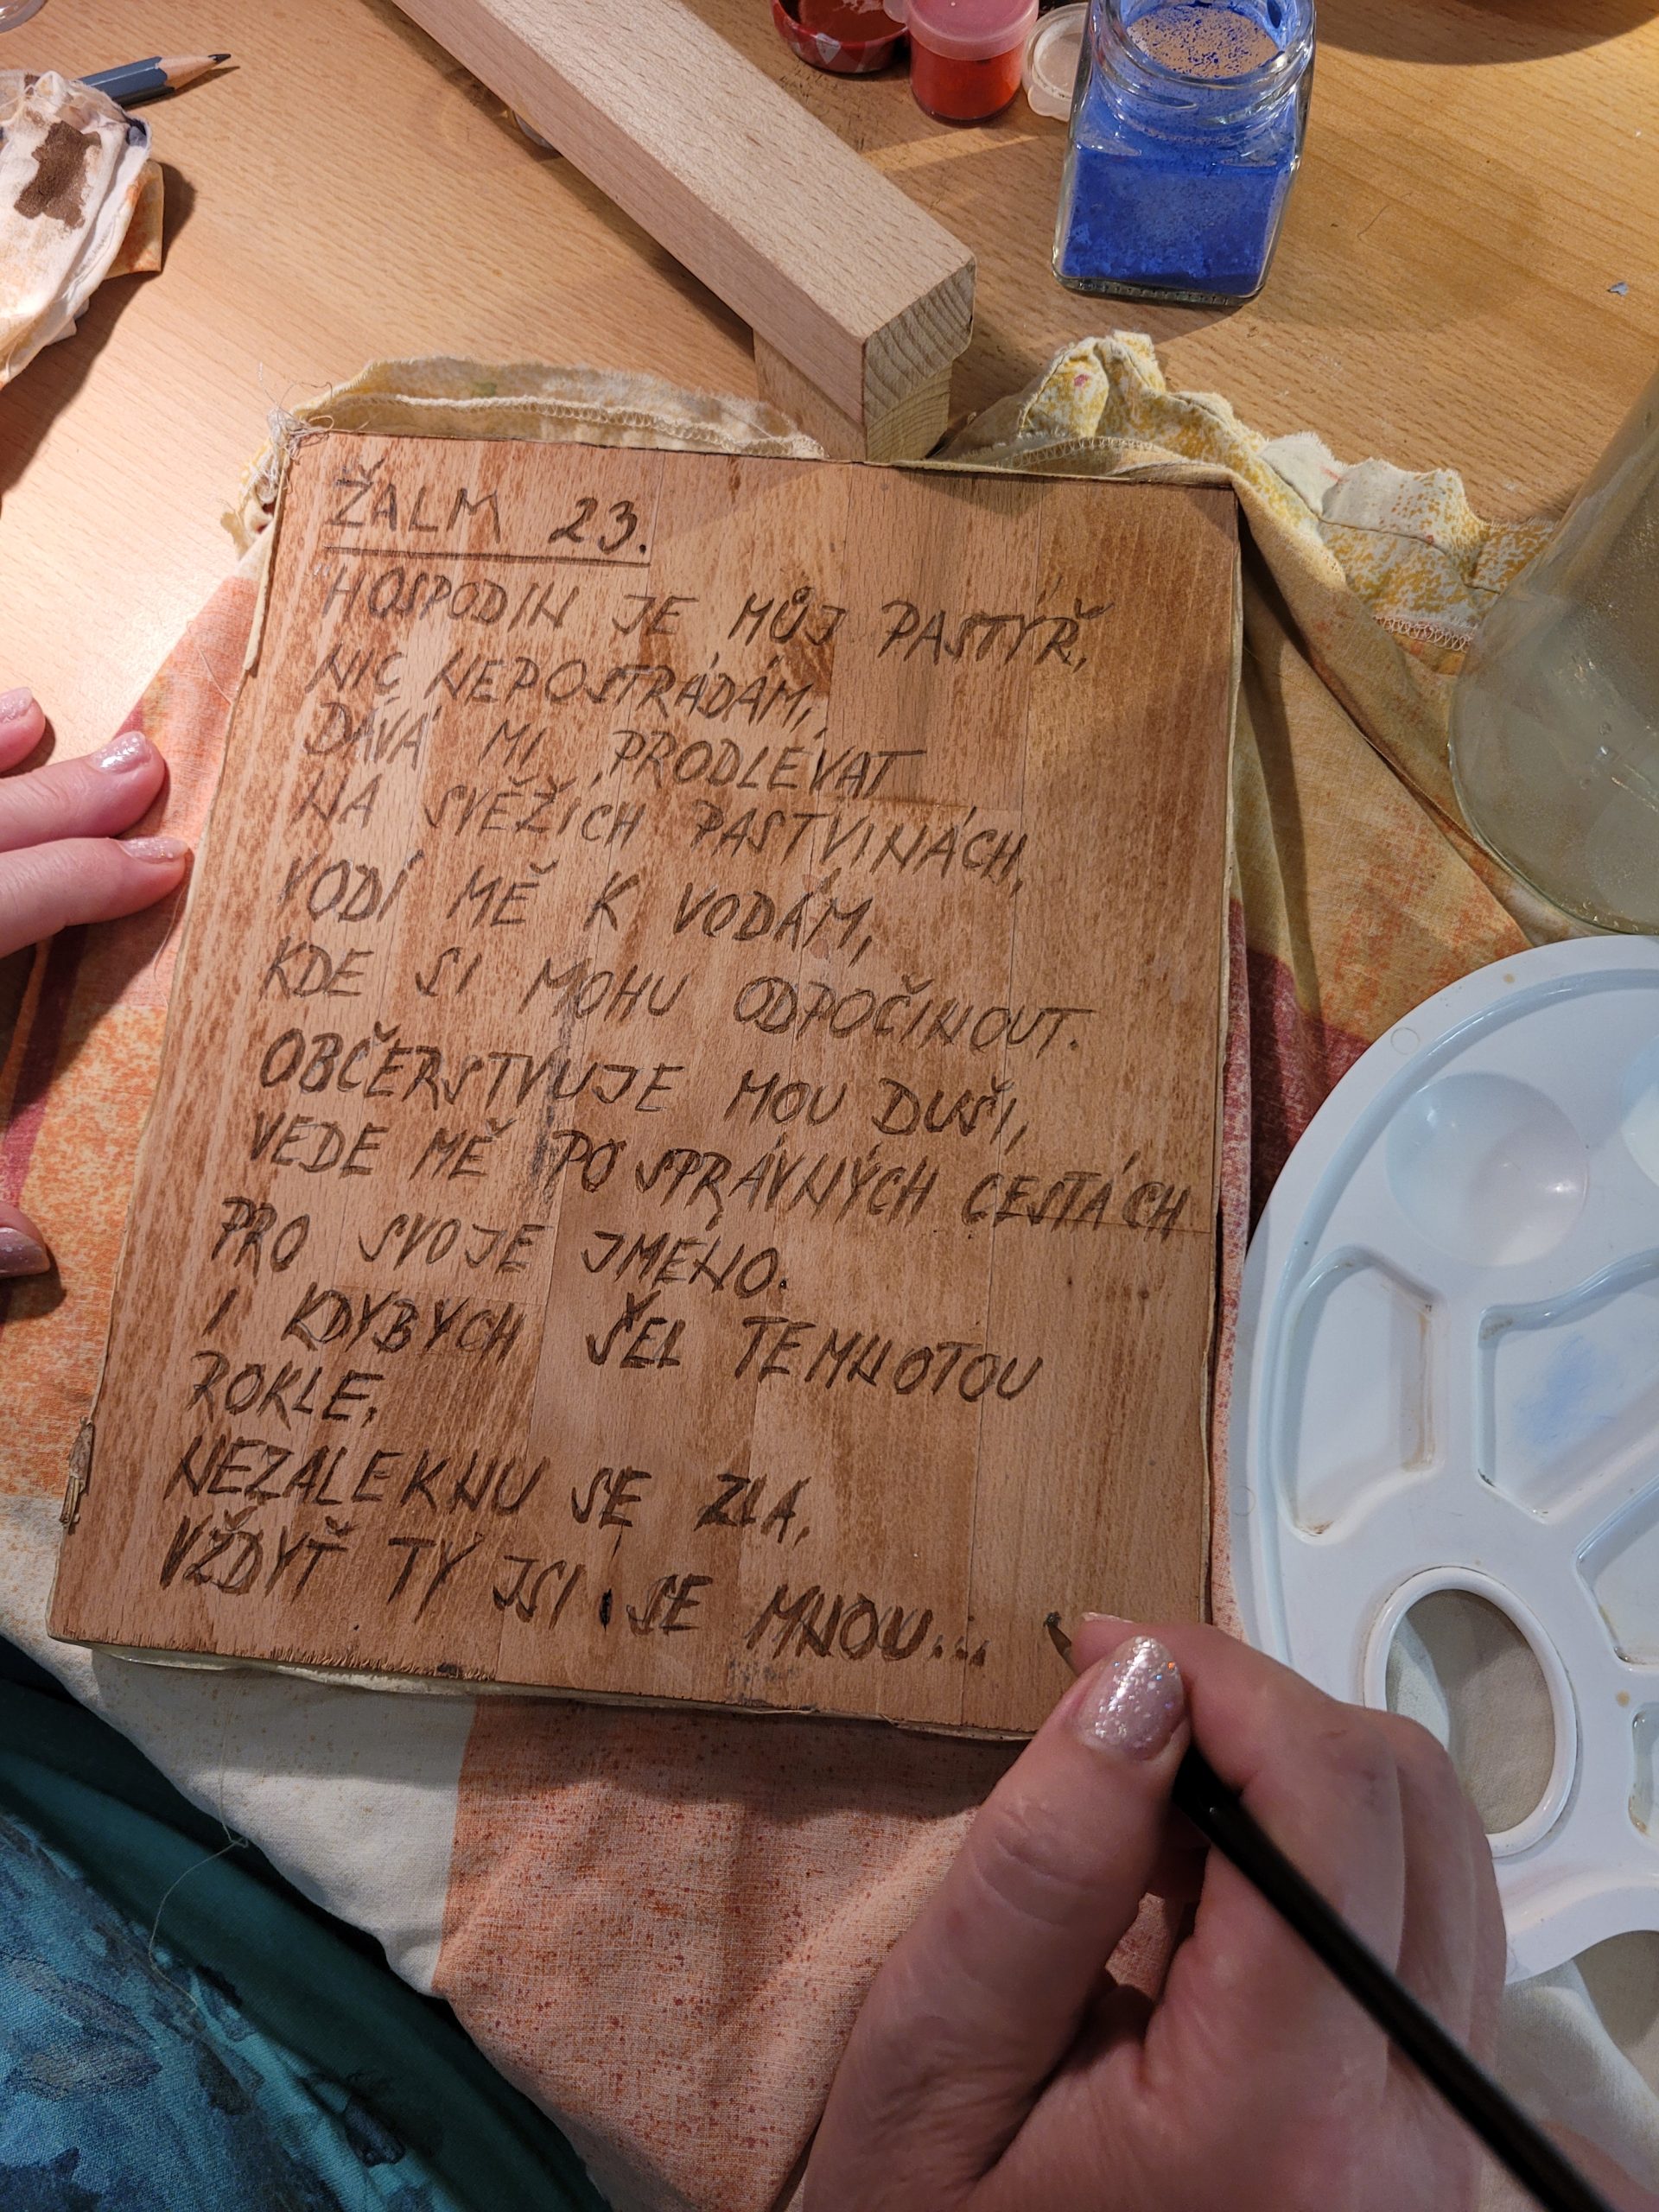 ŽALM 23.
HOSPODIN JE MŮJ PASTÝŘ,
NIC NEPOSTRÁDÁM,
DÁVÁ MI PRODLÉVAT
NA SVĚŽÍCH PASTVINÁCH,
VODÍ MĚ K VODÁM,
KDE SI MOHU ODPOČINOUT.
OBČERSTVUJE MOU DUŠI,
VEDE MĚ PO SPRÁVNÝCH CESTÁCH
PRO SVOJE JMÉNO.
I KDYBYCH ŠEL TEMNOTOU
ROKLE,
NEZALEKNU SE ZLA,
VŽDYŤ TY JSI SE MNOU...